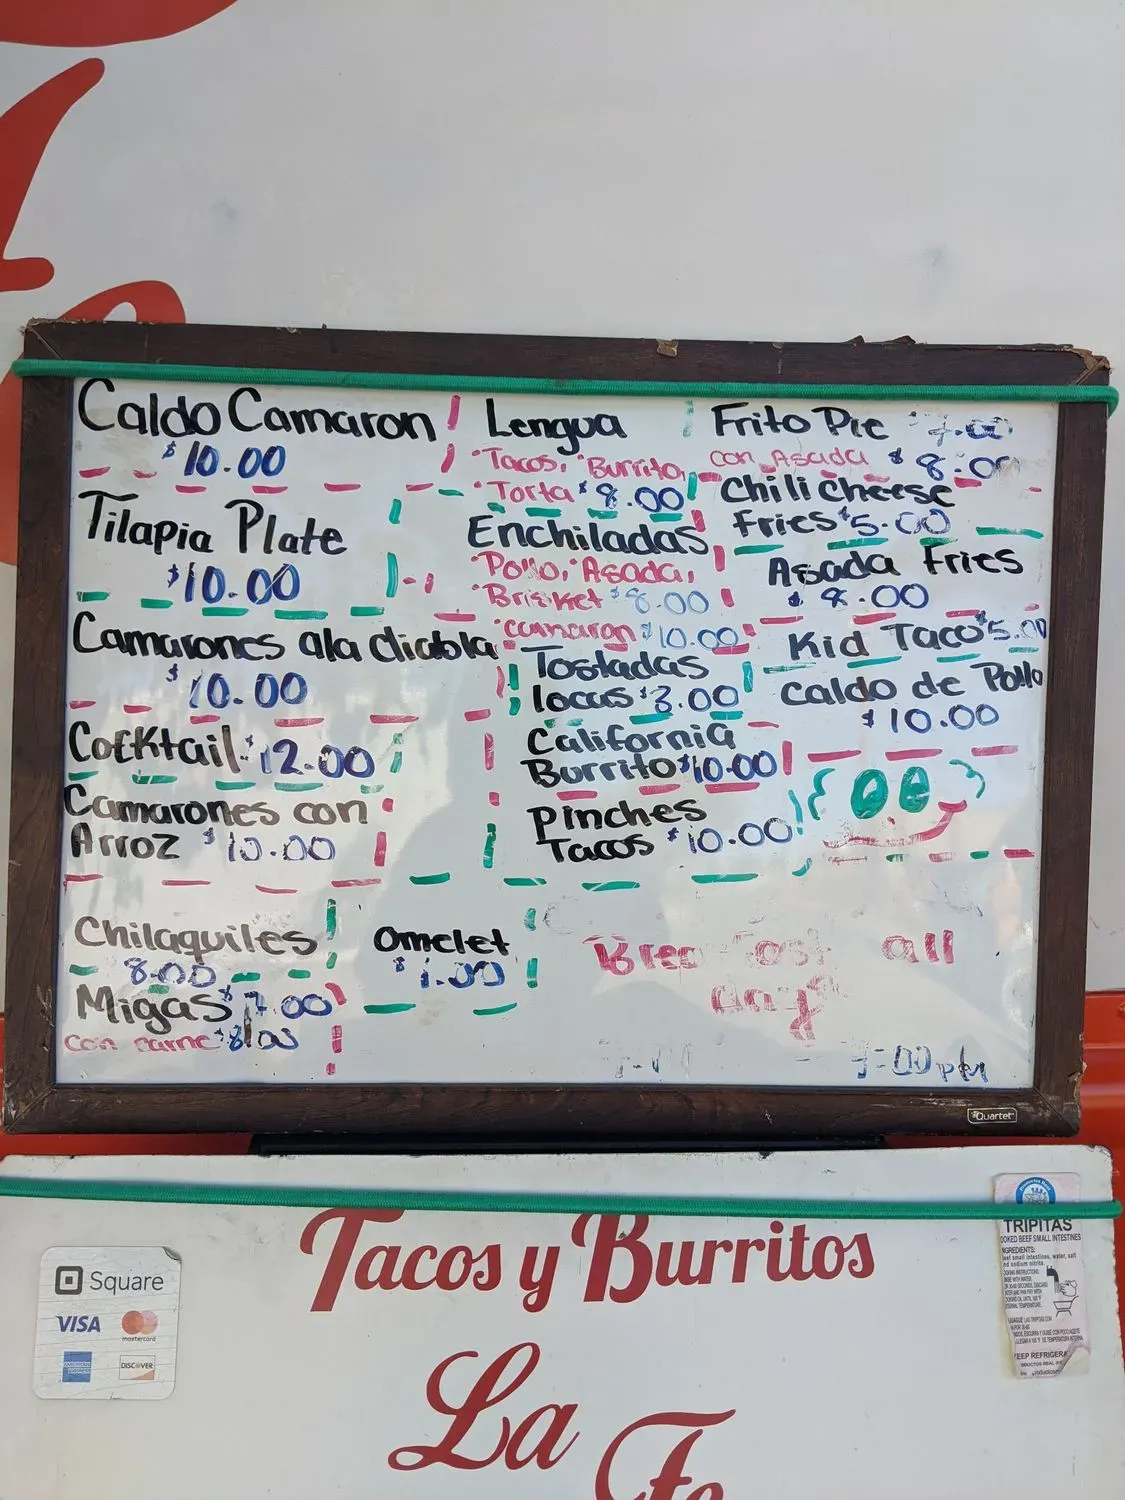 Caldo Camaron
$10.00
Tilapia Plate
$10.00
Camarones ala diabla
$10.00
Cocktail $12.00
Camarones con
Arroz $10.00
Chilaquiles
8.00
Migas $7.00
con carne $8.00
Lengua
Tacos, Burrito,
Torta $8.00
Enchiladas
Pollo, Asada,
Brisket $8.00
camaron $10.00
Tostadas
locas $3.00
California
Burrito $10.00
Pinches
Tacos $10.00
Omelet
Frito Pie $7.00
con Asada $8.00
Chili cheese
Fries $5.00
Asada Fries
$8.00
Kid Taco $5.00
Caldo de Pollo
$10.00
all
day
7:00 pm
Quartet
Tacos y Burritos
La Fe
Square
VISA
mastercard
DISCOVER
TRIPITAS
COOKED BEEF SMALL INTESTINES
KEEP REFRIGERA